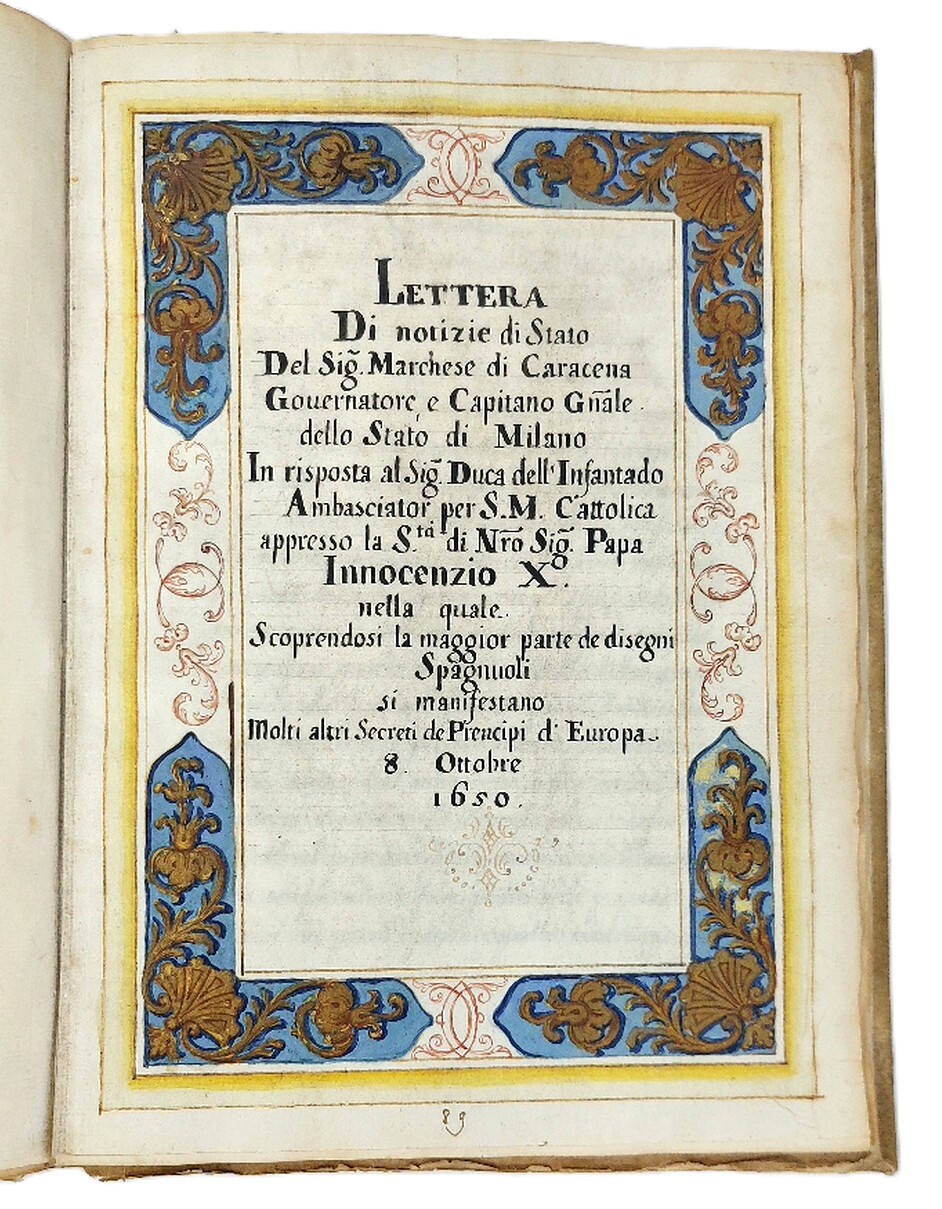 LETTERA
Di notizie di Stato
Del Sig̃. Marchese di Caracena
Gouernatore, e Capitano Gñale.
dello Stato di Milano
In risposta al Sig̃. Duca dell'Infantado
Ambasciator per S.M. Cattolica
appresso la S.tà di Nrõ Sig̃. Papa
Innocenzio X.º
nella quale.
Scoprendosi la maggior parte de disegni
Spagnuoli
si manifestano
Molti altri Secreti de Prencipi d'Europa.
8. Ottobre
1650.
89